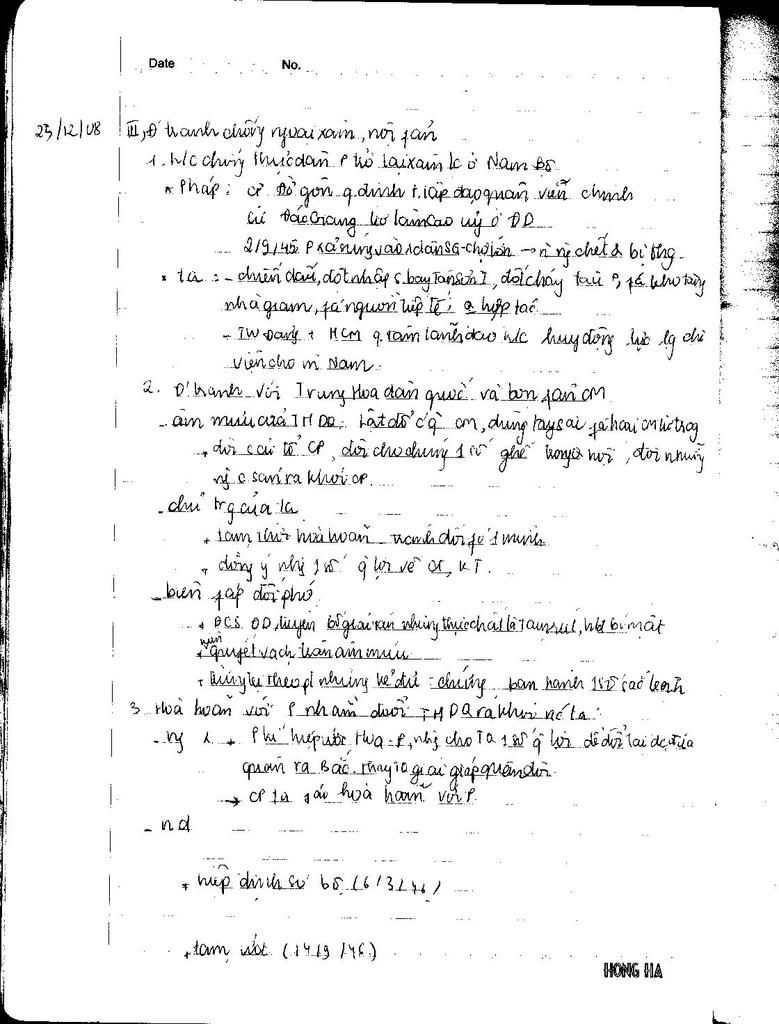 Date No.
23/12/08 III, Đ' tranh chống ngoại xâm, nội fản
1. k/c chống thực dân P trở lại xâm lc ở Nam Bộ
* Pháp: CP Đờ gôn q. định t. lập đạo quân viễn chinh
Cử Đácgiang lơ làm cao uỷ ở ĐD
2/9/45 P xả súng vào ndân SG-Chợ lớn → n ng chết & bị thg.
* ta: - chiến đấu, đột nhập s. bay Tân Sơn N, đốt cháy tàu P, fá kho tàng
nhà giam, fá nguồn tiếp tế, hợp tác
- TW Đảng + HCM q. tâm lãnh đạo k/c huy động lực lg chi
viện cho m Nam.
2. Đ' tranh với Trung Hoa dân quốc và bọn fản CM
- âm mưu của THDQ: Lật đổ c' q` CM, dùng tay sai fá hoại CM từ trog
+ đòi cải tổ CP, đòi cho chúng 1 số ghế trong q hội, đòi những
ng c. sản ra khỏi CP.
- chủ trg của ta
+ tạm thời hoà hoãn tránh đối fó 1 mình
+ đồng ý nhg 1 số q` lợi về Ct, KT.
- biện fáp đối phó
+ ĐCS ĐD, tuyên bố giải tán nhưng thực chất là tạm rút, hđ bí mật
+ kiên quyết vạch trần âm mưu
+ trừng trị theo pl những kẻ đủ chứng ban hành 1 số sắc lệnh
3. Hoà hoãn với P nhằm đuổi THDQ ra khỏi nc ta:
- ng + P kí hiệp ước Hoa-P, nhg cho TQ 1 số q` lợi để đổi lại đc đưa
quân ra Bắc. thay TQ giải giáp quân đội
→ CP ta hoà hoãn với P.
- nd
+ hiệp định sơ bộ (6/3/46)
+ tạm ước (14/9/46)
HONG HA